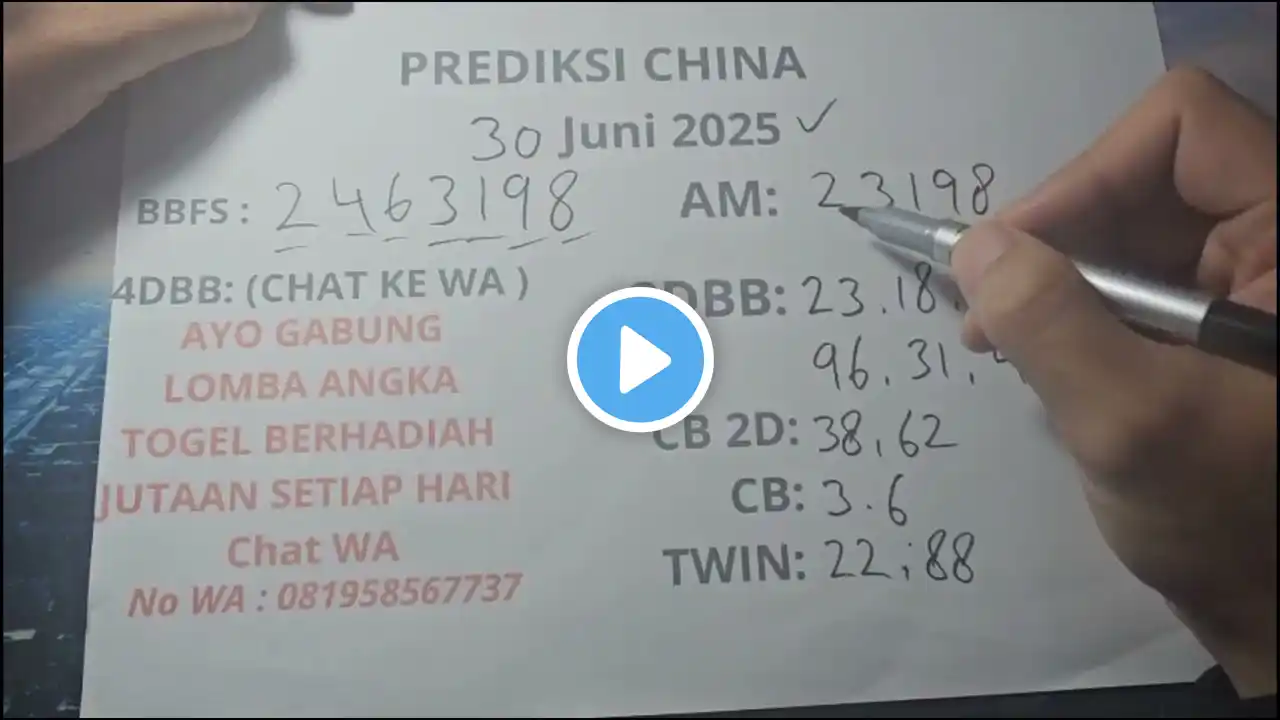 PREDIKSI CHINA
30 Juni 2025 ✓
BBFS : 2463198
AM: 23198
4DBB: (CHAT KE WA )
DBB: 23.18.
96.31.
AYO GABUNG
LOMBA ANGKA
TOGEL BERHADIAH
JUTAAN SETIAP HARI
Chat WA
No WA : 081958567737
CB 2D: 38,62
CB: 3.6
TWIN: 22;88